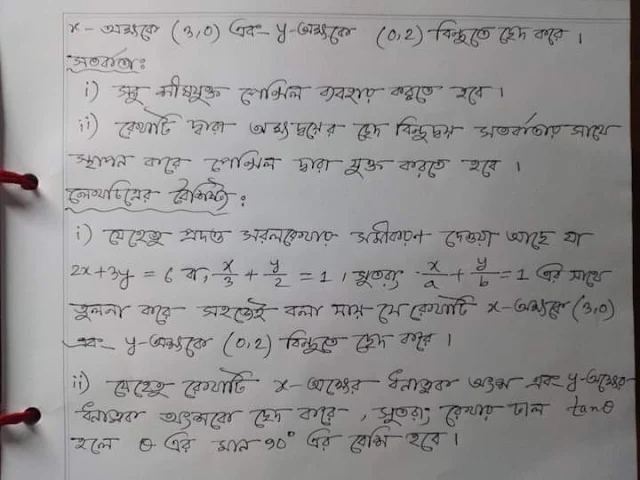 x- অক্ষকে (3,0) এবং y-অক্ষকে (0,2) বিন্দুতে ছেদ করে ।
সতর্কতাঃ
i) সরু শীষযুক্ত পেন্সিল ব্যবহার করতে হবে ।
ii) রেখাটি দ্বারা অক্ষদ্বয়ের ছেদ বিন্দুদ্বয় সতর্কতার সাথে
স্থাপন করে পেন্সিল দ্বারা যুক্ত করতে হবে ।
লেখচিত্রের বৈশিষ্ট্য :
i) যেহেতু প্রদত্ত সরলরেখার সমীকরণ দেওয়া আছে যা
2x+3y = 6 বা, x/3 + y/2 = 1 , সুতরাং x/a + y/b = 1 এর সাথে
তুলনা করে সহজেই বলা যায় যে রেখাটি x-অক্ষকে (3,0)
এবং y-অক্ষকে (0,2) বিন্দুতে ছেদ করে ।
ii) যেহেতু রেখাটি x-অক্ষের ধনাত্মক অংশ এবং y-অক্ষের
ধনাত্মক অংশকে ছেদ করে , সুতরাং রেখার ঢাল tanθ
হলে θ এর মান ৯০° এর বেশি হবে ।